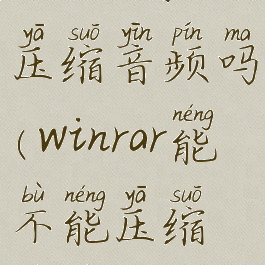 yā suō yīn pín ma
压缩音频吗
néng
(winrar能
bù néng yā suō
不能压缩